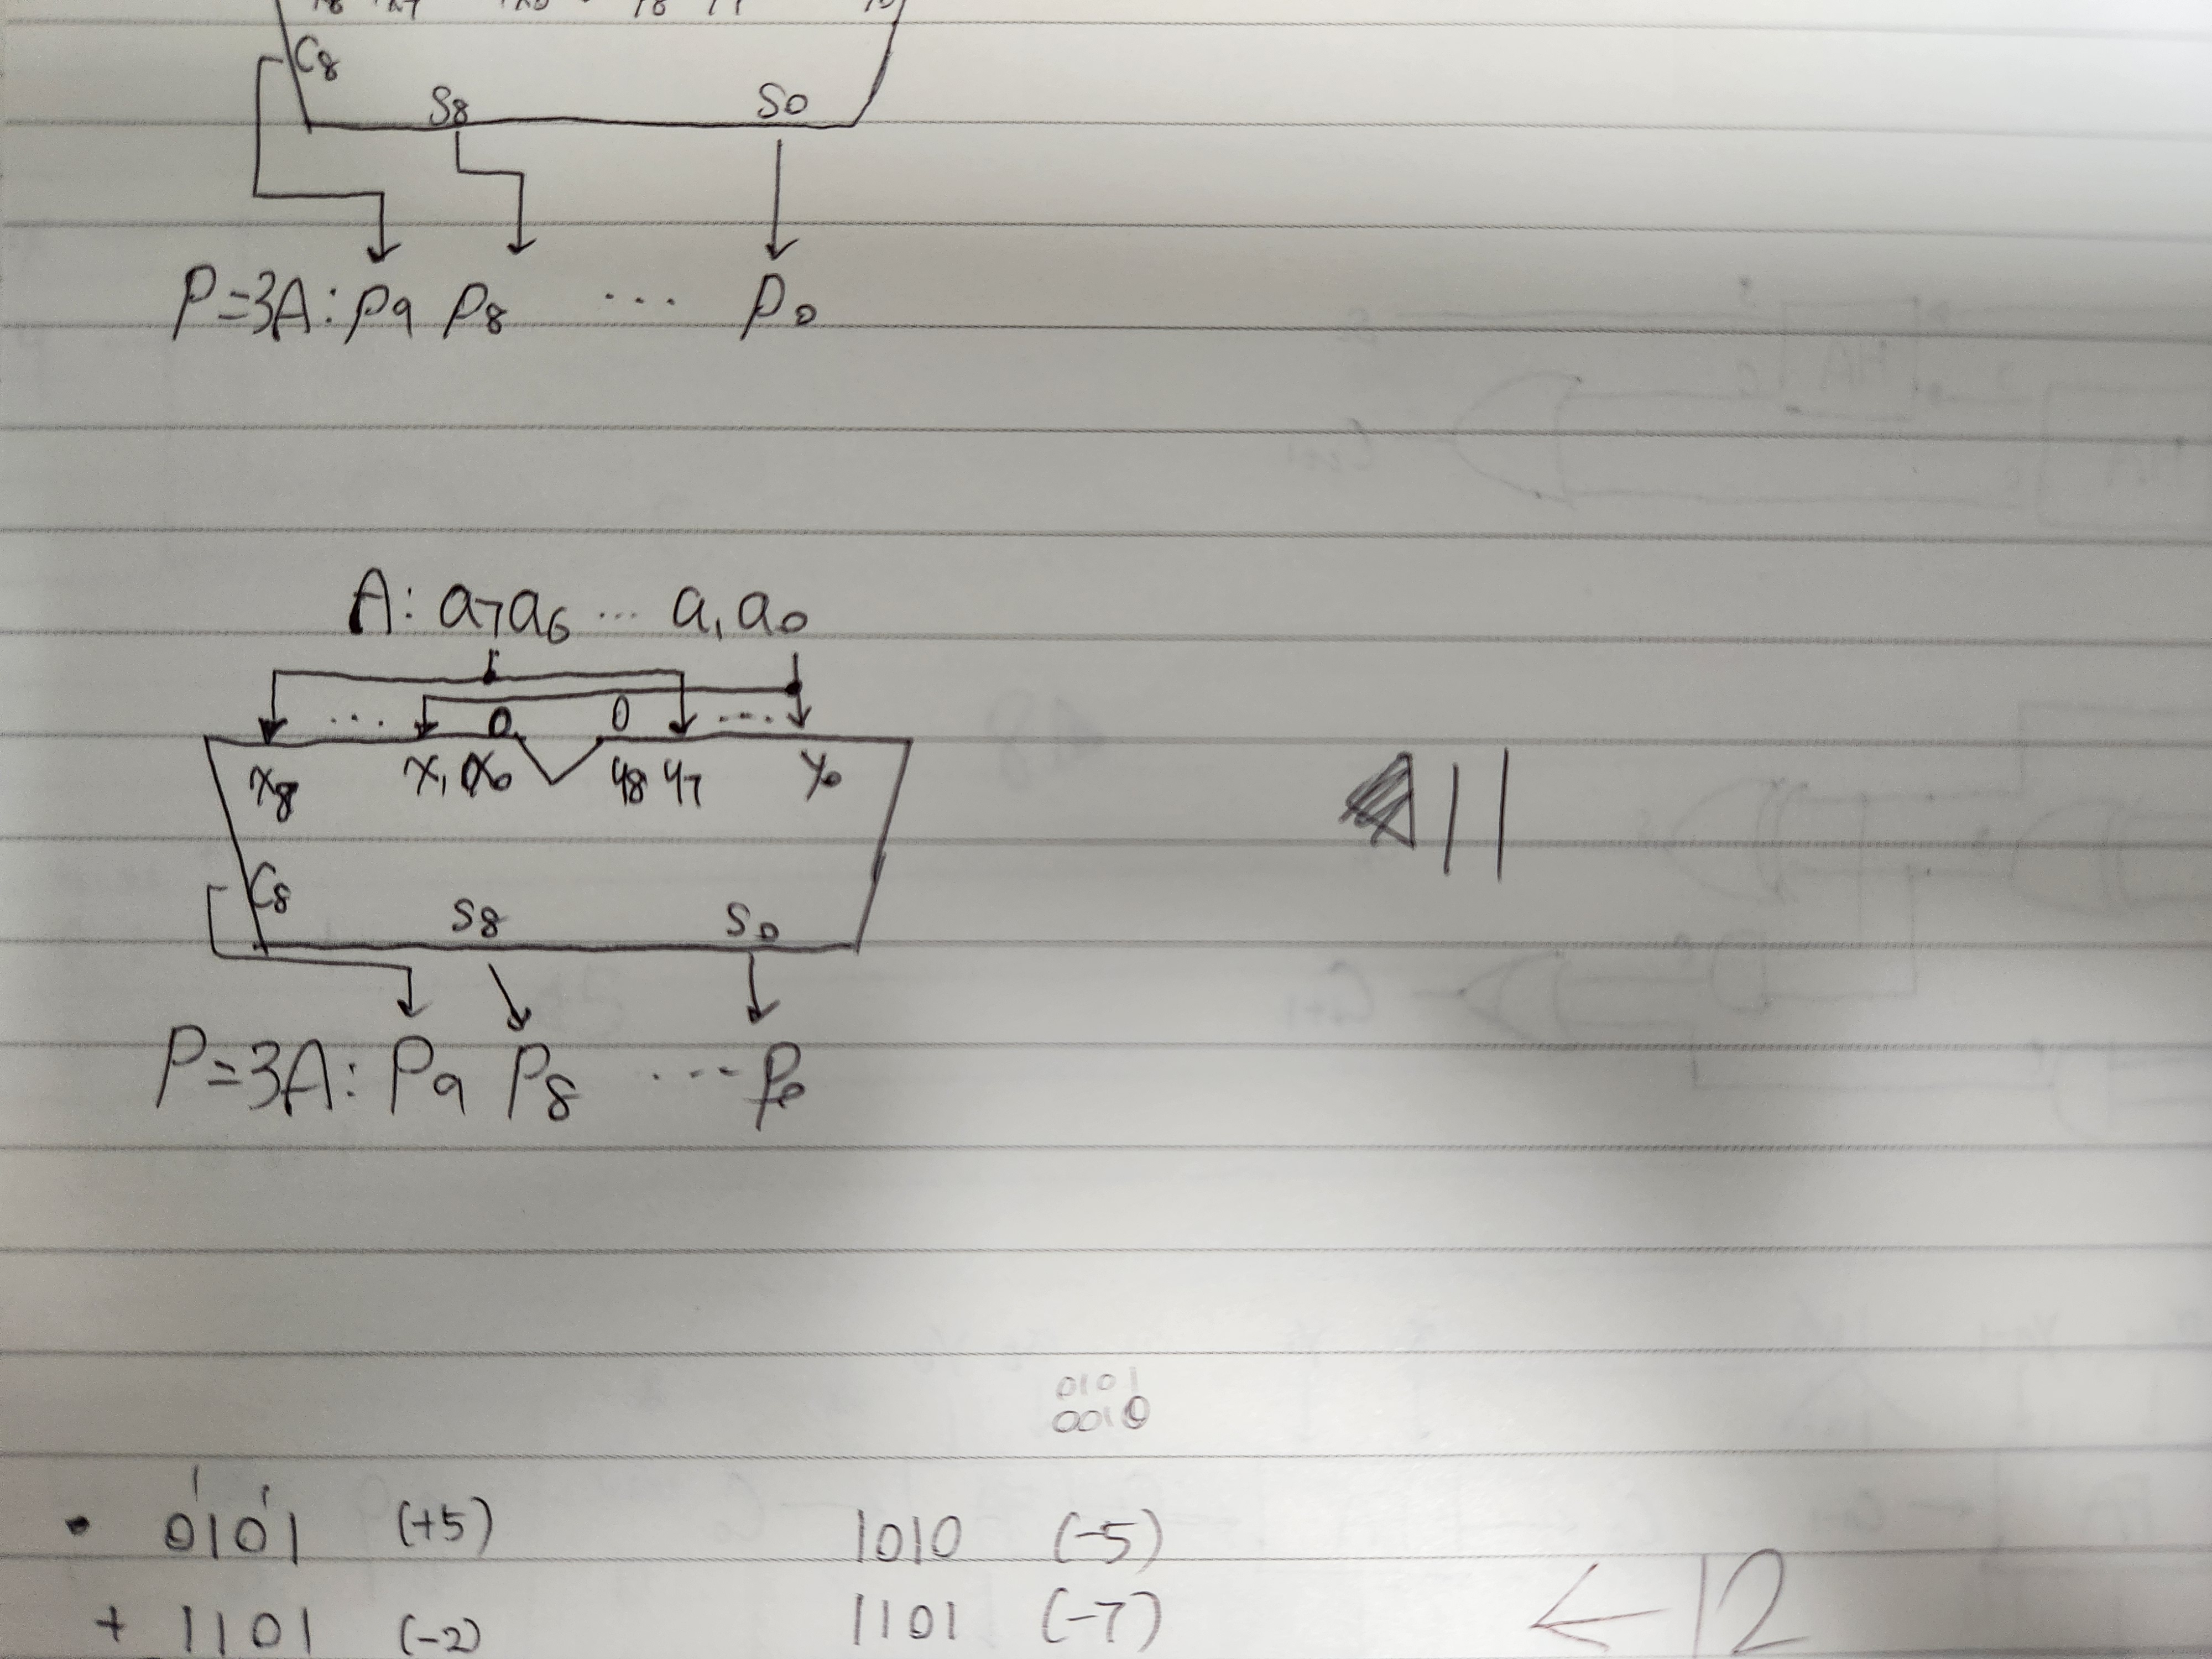 C8
S8 S0
P=3A: P9 P8 ... P0
A: a7 a6 ... a1 a0
... 0 0 ...
x8 x1 x0 y8 y7 y0
11
C8
S8 S0
P=3A: P9 P8 ... P0
0101
0010
1 1
• 0101 (+5) 1010 (-5)
+ 1101 (-2) 1101 (-7) ← 12